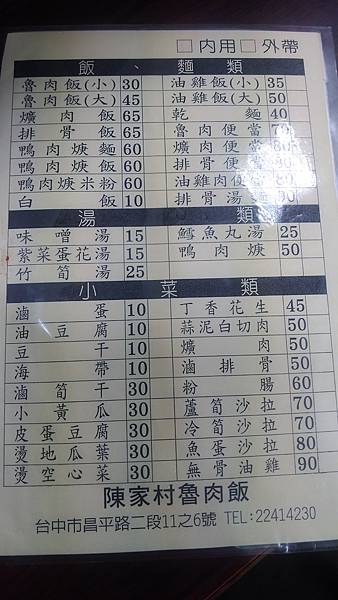 □內用 □外帶
飯、麵類
魯肉飯(小) 30 油雞飯(小) 35
魯肉飯(大) 45 油雞飯(大) 50
爌肉飯 65 乾麵 40
排骨飯 65 魯肉便當 70
鴨肉焿麵 60 爌肉便當 80
鴨肉焿飯 60 排骨便當 80
鴨肉焿米粉 60 油雞肉便當 80
白飯 10 排骨湯麵 90
湯類
味噌湯 15 鱈魚丸湯 25
紫菜蛋花湯 15 鴨肉焿 50
竹筍湯 25
小菜類
滷蛋 10 丁香花生 45
油豆腐 10 蒜泥白切肉 50
豆干 10 爌肉 50
海帶 10 滷排骨 50
滷筍干 30 粉腸 60
小黃瓜 30 蘆筍沙拉 70
皮蛋豆腐 30 冷筍沙拉 70
燙地瓜葉 30 魚蛋沙拉 80
燙空心菜 30 無骨油雞 90
陳家村魯肉飯
台中市昌平路二段11之6號 TEL:22414230